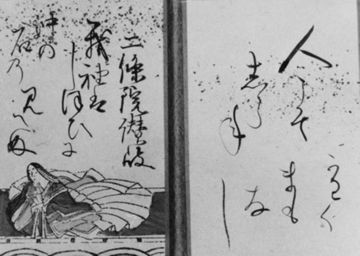 二條院讃岐
我袖は
しほひに
見えぬ
沖の
石の
人こそ
しらね
かはく
まも
なし